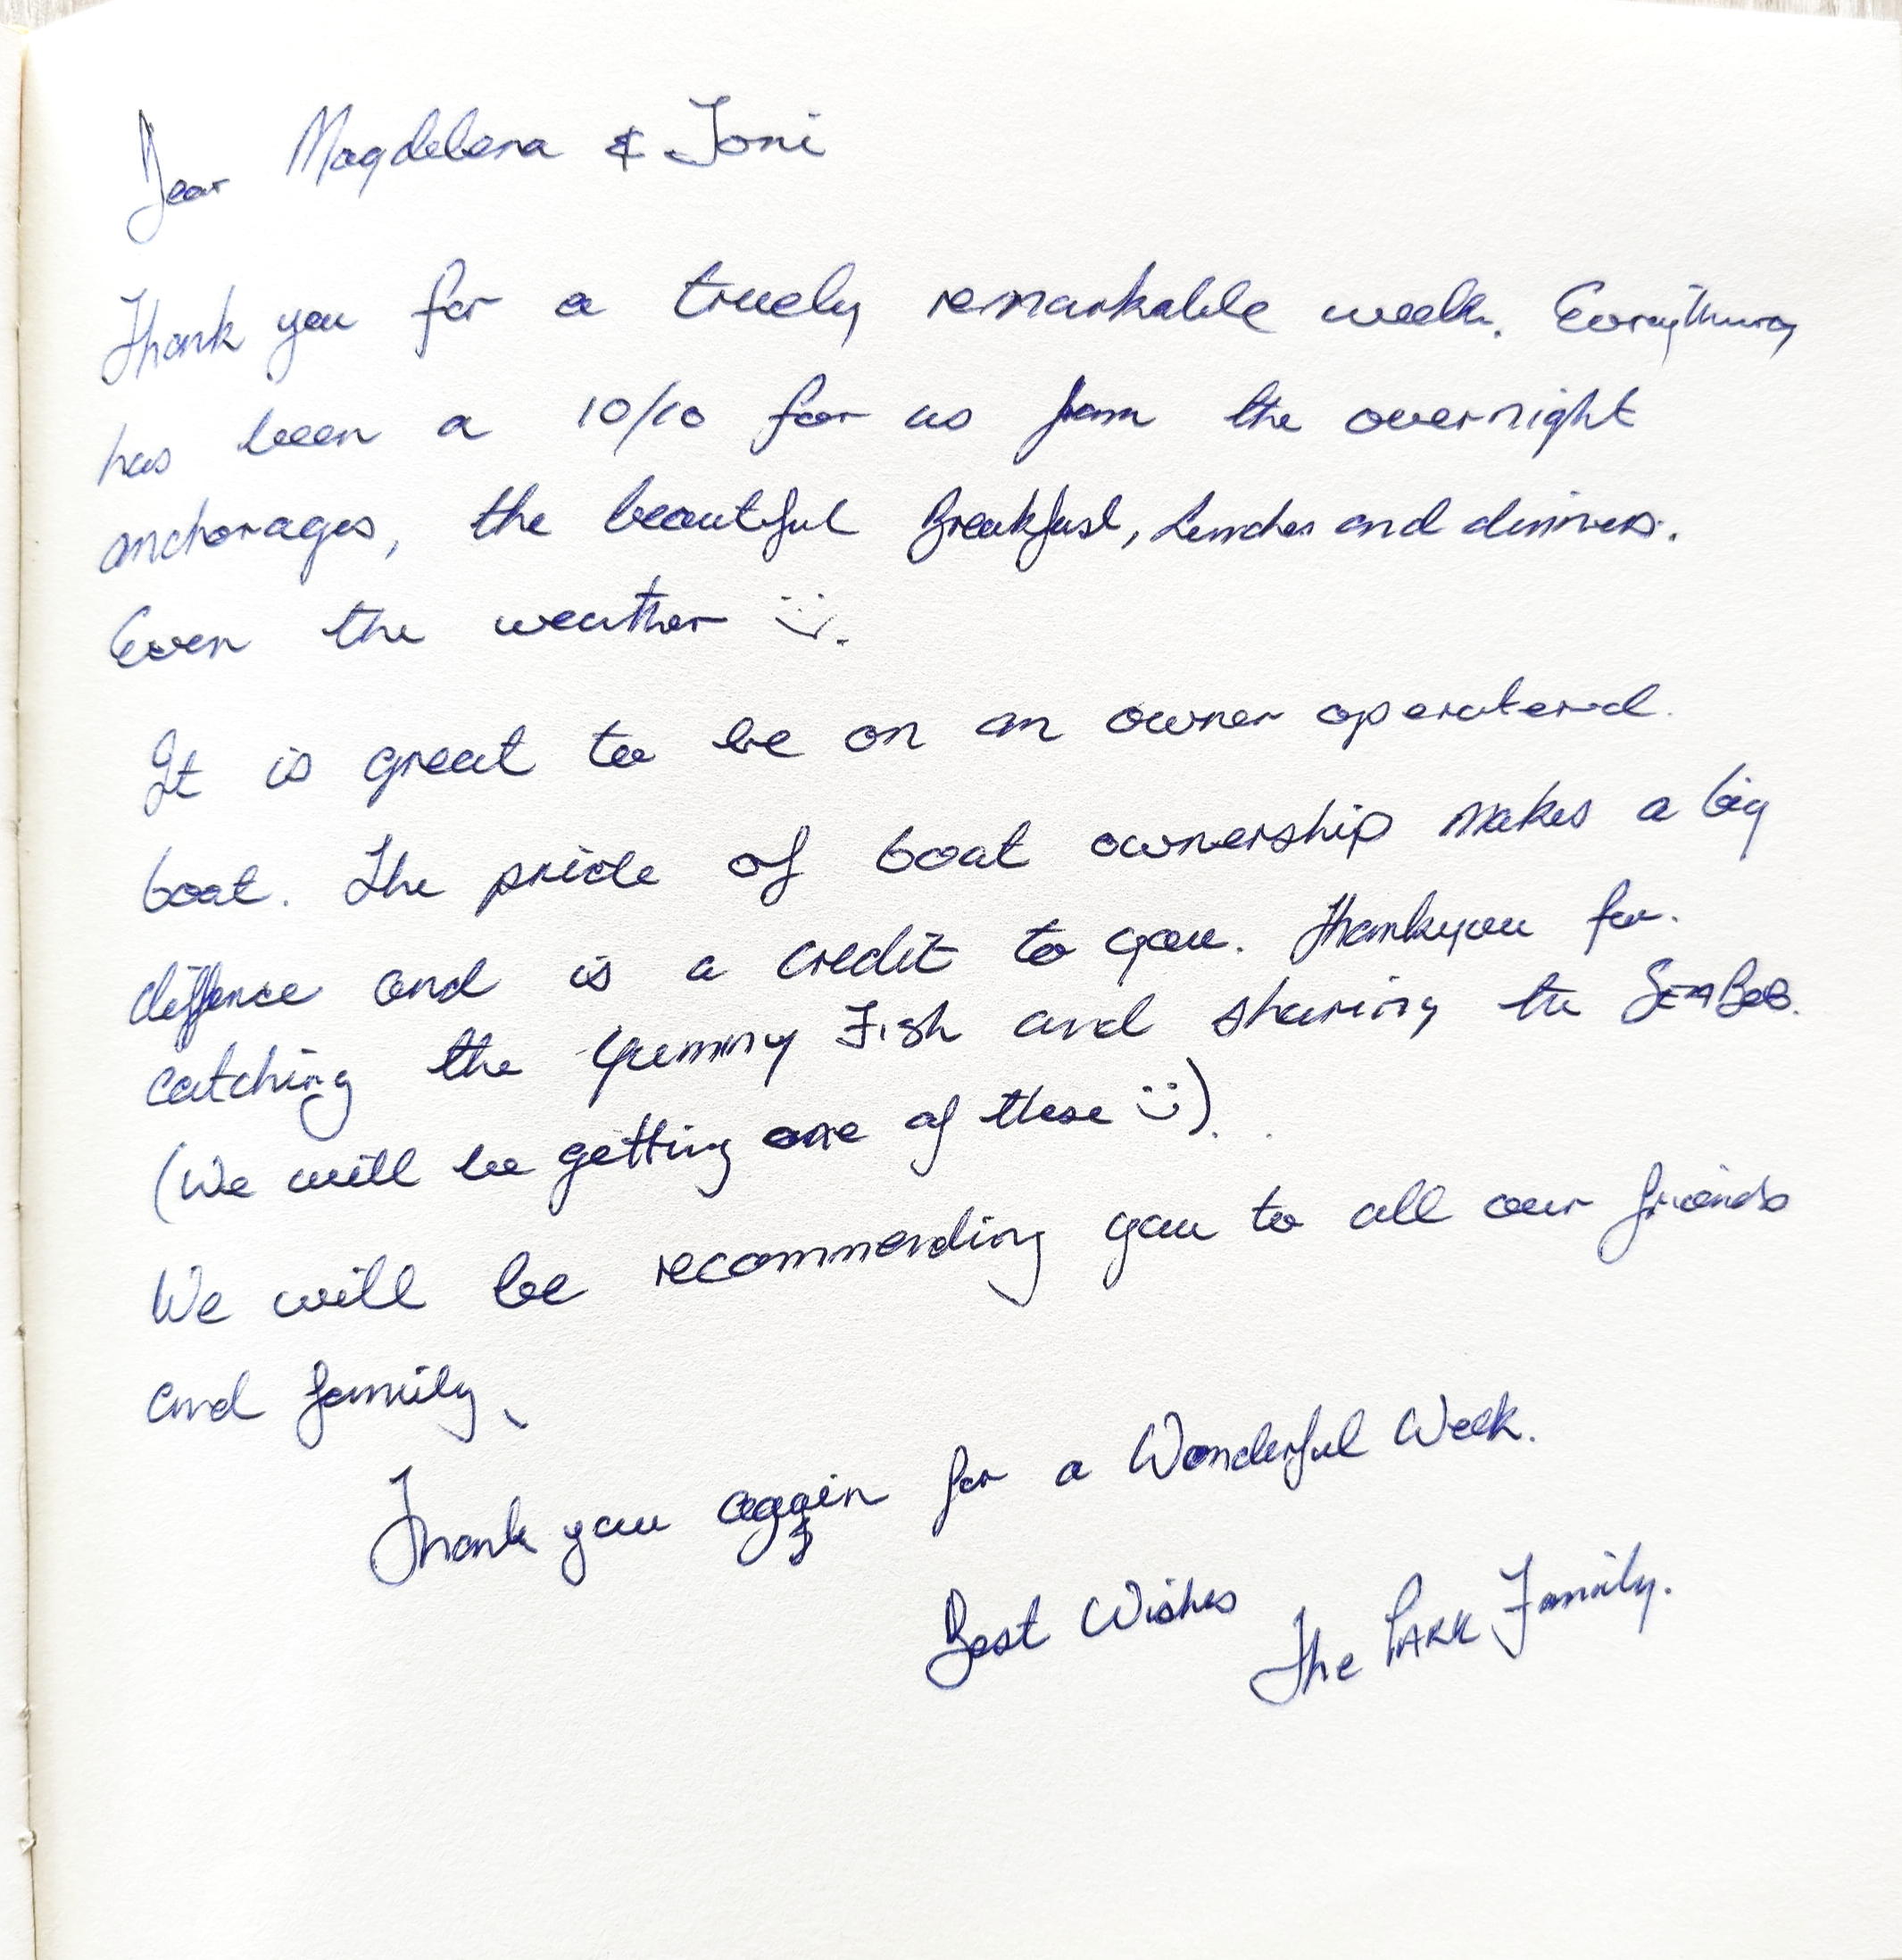 Dear Magdelena & Toni
Thank you for a truely remarkable week. Everything
has been a 10/10 for us from the overnight
anchorages, the beautiful Breakfast, Lunches and dinners.
Even the weather :).
It is great to be on an owner operatered.
boat. The pride of boat ownership makes a big
diffence and is a credit to you. Thankyou for.
catching the yummy Fish and sharing the SEABOB.
(We will be getting one of these :)).
We will be recommending you to all our friends
and family.
Thank you again for a Wonderful Week.
Best Wishes
The PARK Family.